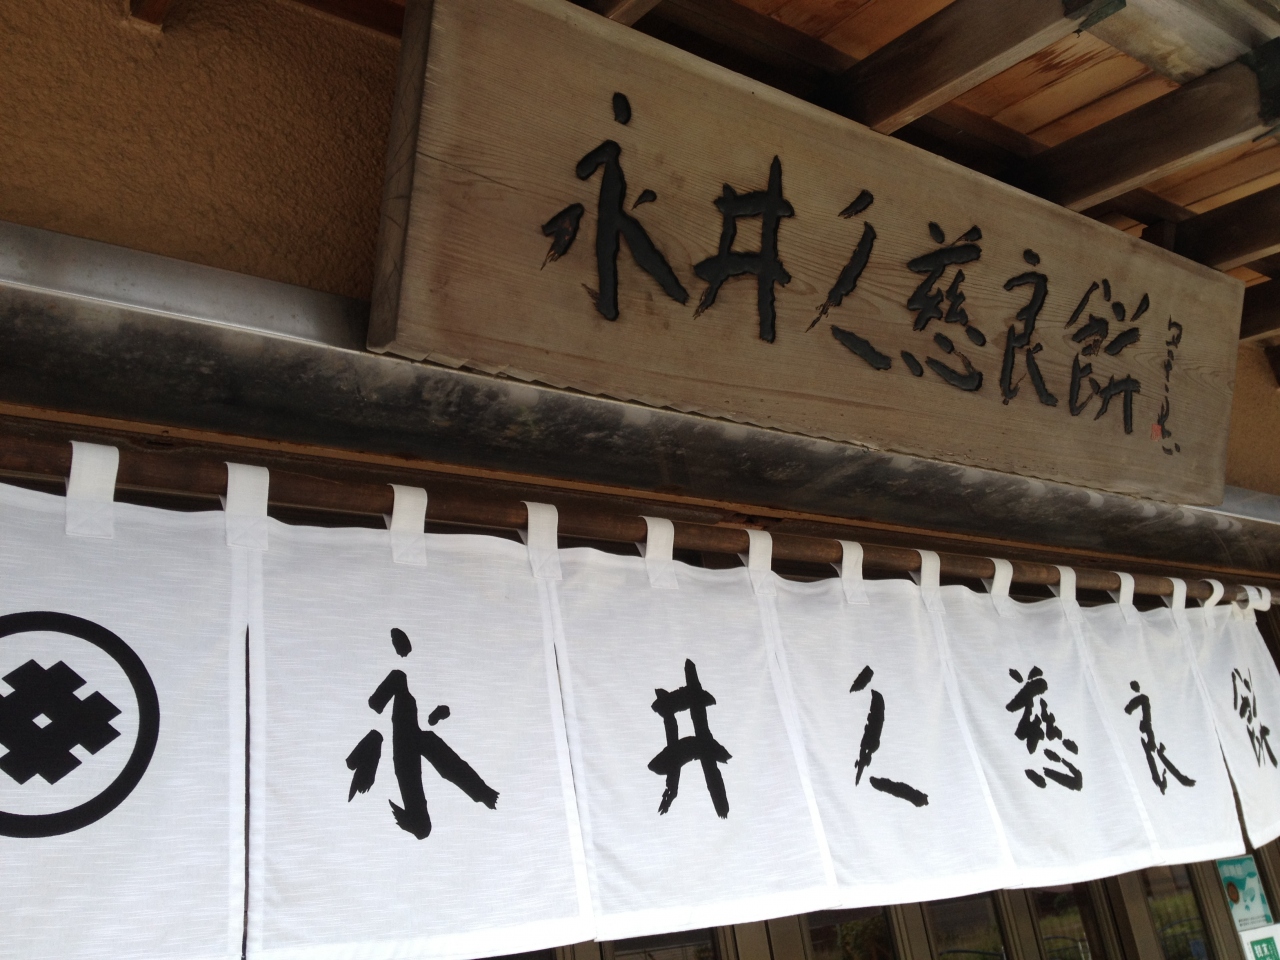 永井久慈良餅
永井久慈良餅